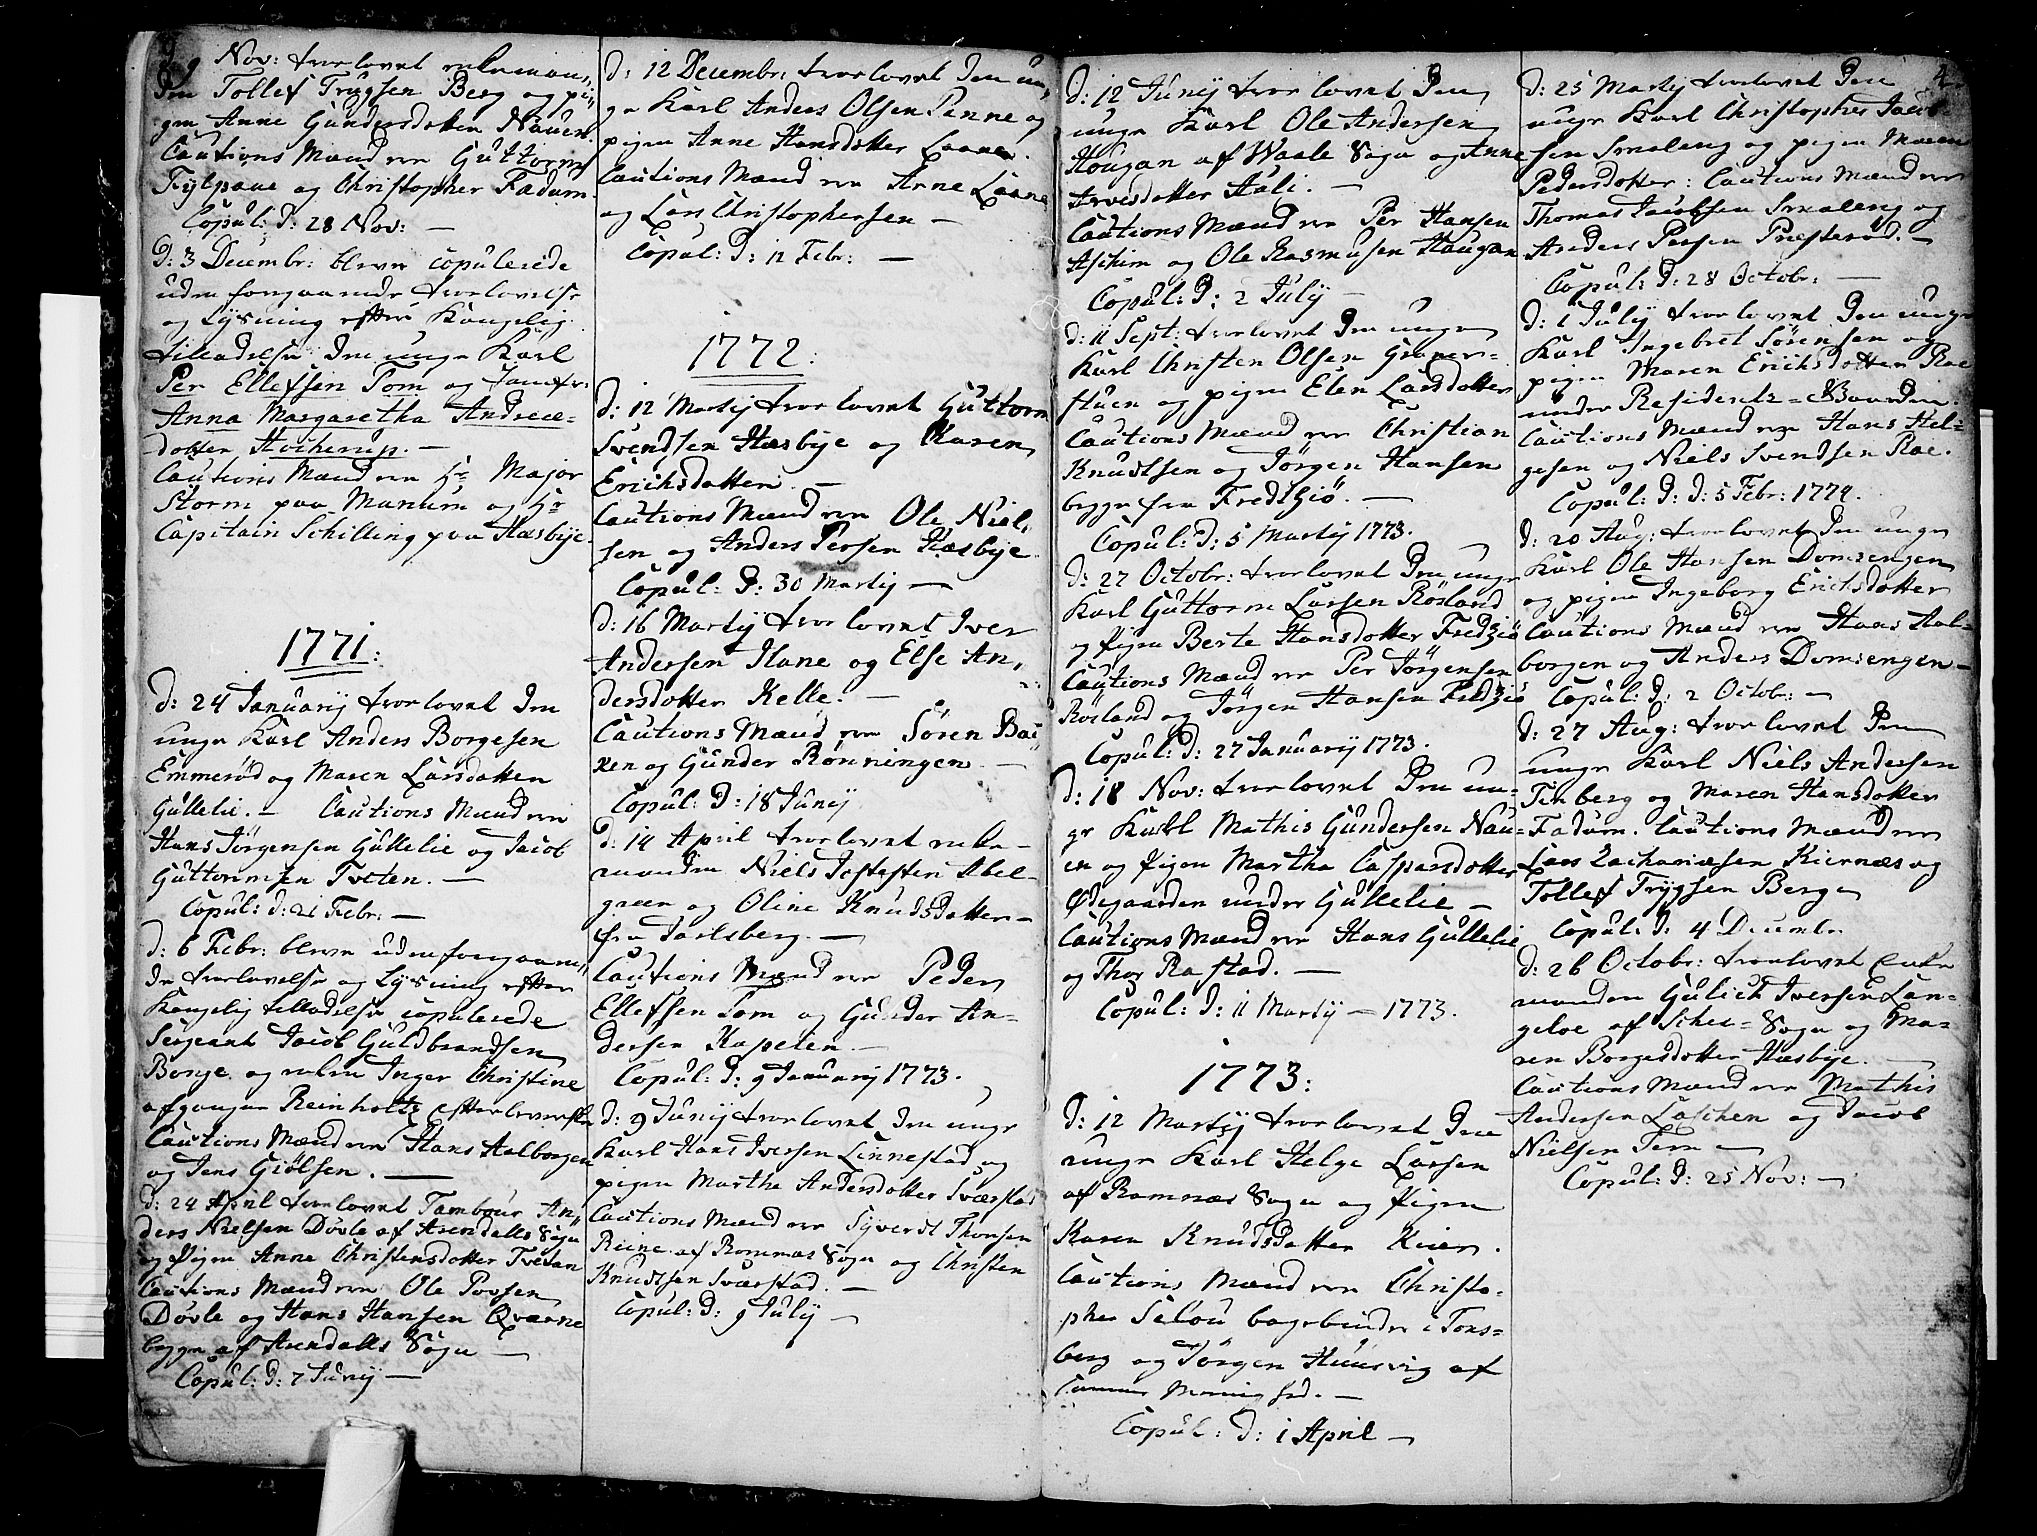 9 Nov: trorlovet enkeman,,
den Tollef Trygsen Berg og pi,,
gen Anne Gundersdotter Nauen
Cautions Mænd ere Guttorm
Fylpaae og Christopher Fadum.
Copul: d: 28 Nov: —
d: 3 Decembr: bleve copulerede
uden foregaaende trolovelse
og Lysning efter Kongelig
tilladelse den unge Karl
Per Ellefsen Tom og Jomfr:
Anna Margaretha Andreæ-
dotter Hocherup. —
Cautions Mænd ere Hr Major
Storm paa Manum og Hr
Capitain Schilling paa Hæsbye.
1771:
d: 24 Januarij trorlovet den
unge Karl Anders Borgesen
Emmerød og Maren Larsdotter
Gullelie. — Cautions Mænd ere
Hans Jörgensen Gullelie og Jacob
Guttormsen Tveten. —
Copul: d: 21 Febr: —
d: 6 Febr: bleve uden foregaaen,,
de trorlovelse og Lysning efter
Kongelig tilladelse copulerede
Sergeant Jacob Guldbrandsen
Borge og enken Inger Christine
afgangne Reinholts Efterleverske
Cautions Mænd ere Hans Aalborgen
og Jens Giölsen. —
d: 24 April trorlovet Tambour An,,
ders Nielsen Dövle af Arendalls Sogn
og Pigen Anne Christensdotter Tvetan
Cautions Mænd ere Ole Povsen
Dövle og Hans Hansen Qværne
bygge af Arendalls Sogn —
Copul: d: 7 Junij —
d: 12 Decembr: trorlovet den un,,
ge Karl Anders Olsen Penne og
pigen Anne Hansdotter Laane.
Cautions Mænd ere Arne Laane
og Lars Christophersen —
Copul: d: 12 Febr: —
1772:
d: 12 Martij trorlovet Guttorm
Svendsen Hæsbye og Karen
Erichsdotter. —
Cautions Mænd ere Ole Niel,
sen og Anders Persen Hæsbye
Copul: d: 30 Martij —
d: 16 Martij trorlovet Iver
Andersen Ilane og Else An,
dersdotter Kelle. —
Cautions Mænd ere Sören Bac
ken og Gunder Rönningen —
Copul: d: 18 Junij
d: 14 April trorlovet enke-
manden Niels Jostesen Abel-
green og Oline Knudsdotter
fra Jarlsberg. —
Cautions Mænd ere Peder
Ellefsen Tom og Gunder An-
dersen Kapelen —
Copul: d: 9 Januarij 1773.
d: 9 Junij trorlovet den unge
Karl Hans Iversen Linnestad og
pigen Marthe Andersdotter Sværstad
Cautions Mænd ere Syverdt Thorsen
Reine af Romnæs Sogn og Christen
Knudtsen Sværstad. —
Copul: d: 9 July —
d: 12 Junij trorlovet den
unge Karl Ole Andersen
Hougan af Waale Sogn og Anne
Arvesdotter Hali. —
Cautions Mænd ere Per Hansen
Aschim og Ole Rasmusen Haugan
Copul: d: 2 July —
d: 11 Sept: trorlovet den unge
Karl Christen Olsen Graner-
stuen og pigen Elen Larsdotter
Cautions Mænd ere Christian
Knudtsen og Jörgen Hansen
begge fra Fredtziö. —
Copul: d: 5 Martij 1773.
d: 27 Octobr: trorlovet den unge
Karl Guttorm Larsen Rösland
og Pigen Berte Hansdotter Fredziö
Cautions Mænd ere Per Jörgensen
Rösland og Jörgen Hansen Fredziö
Copul: d: 27 Januarij 1773.
d: 18 Nov: trorlovet den un-
ge Karl Mathis Gundersen Nau-
en og Pigen Martha Caspersdotter
Ödegaarden under Gullelie —
Cautions Mænd ere Hans Gullelie
og Thor Rastad. —
Copul: d: 11 Martij — 1773.
1773:
d: 12 Martij trorlovet den
unge Karl Helge Larsen
af Ramnæs Sogn og Pigen
Karen Knudsdotter Kier.
Cautions Mænd ere Christo-
pher Selou bogebinder i Tons-
berg og Jörgen Huusvig af
Copul: d: 1 April —
4
d: 25 Martij trorlovet den
unge Karl Christopher Jacob-
sen Smaleng og pigen Maren
Pedersdotter: Cautions Mænd ere
Thomas Jacobsen Smaleng og
Anders Persen Præsteröd. —
Copul: d: 28 Octobr: —
d: 1 Julij trorlovet den unge
Karl Ingebret Sörensen og
pigen Maren Erichsdotter Roe
under Residentz-Gaarden.
Cautions Mænd ere Hans Hel-
gesen og Niels Svendsen Roe.
Copul: d: d: 5 Febr: 1774.
d: 20 Aug: trorlovet den unge
Karl Ole Hansen Domsengen
og pigen Ingeborg Erichsdotter
Cautions Mænd ere Hans Aal-
borgen og Anders Domsengen —
Copul: d: 2 Octobr: —
d: 27 Aug: trorlovet den
unge Karl Niels Andersen
Tinberg og Maren Hansdotter
Fadum. Cautions Mænd ere
Lars Zachariæsen Kiernæs og
Tollef Trygsen Berge
Copul: d: 4 Decembr
d: 26 Octobr: trorlovet Enke
manden Gulich Iversen Lan-
geloe af Schee-Sogn og Ma-
ren Borgesdotter Hæsbye. —
Cautions Mænd ere Mathis
Andersen Laschen og Jacob
Nielsen Tem —
Copul: d: 25 Nov: —